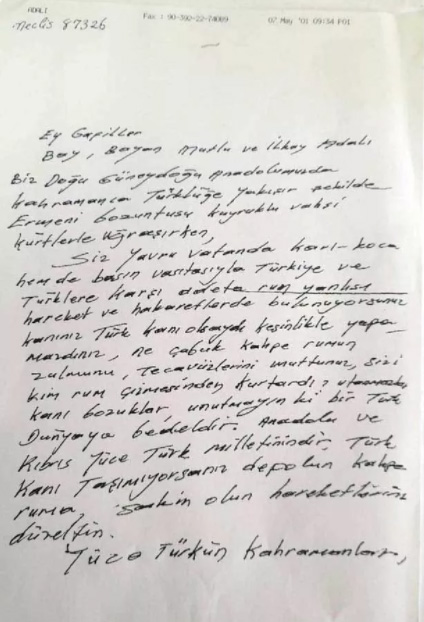 ADALI
Meclis 87326
Fax : 90-392-22-74089
07 May '01 09:34 P01
Ey Gafiller
Bay, Bayan Mutlu ve İlkay Adalı
Biz Doğu Güneydoğu Anadolumuzda
kahramanca Türklüğe yakışır şekilde
Ermeni bozuntusu kuyruklu vahşi
kürtlerle uğraşırken,
Siz Yavru vatanda karı-koca
hem de basın vasıtasıyla Türkiye ve
Türklere karşı adeta rum yanlısı
hareket ve hakaretlerde bulunuyorsunuz
kanınız Türk kanı olsaydı kesinlikle yapa
mazdınız, ne çabuk kahpe rumun
zulmunu, tecavüzlerini unuttunuz, sizi
kim rum çizmesinden kurtardı? utanmazlar
kanı bozuklar, unutmayın ki bir Türk
Dünyaya bedeldir. Anadolu ve
Kıbrıs Yüce Türk milletinindir. Türk
Kanı Taşımıyorsanız defolun kahpe
ruma, sakin olun hareketlerinizi
düzeltin.
Yüce Türkün Kahramanları,